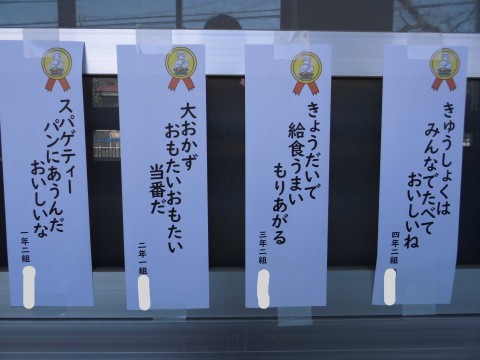 きゅうしょくは
みんなでたべて
おいしいね
四年二組
きょうだいで
給食うまい
もりあがる
三年二組
大おかず
おもたいおもたい
当番だ
二年一組
スパゲティー
パンにあうんだ
おいしいな
一年二組